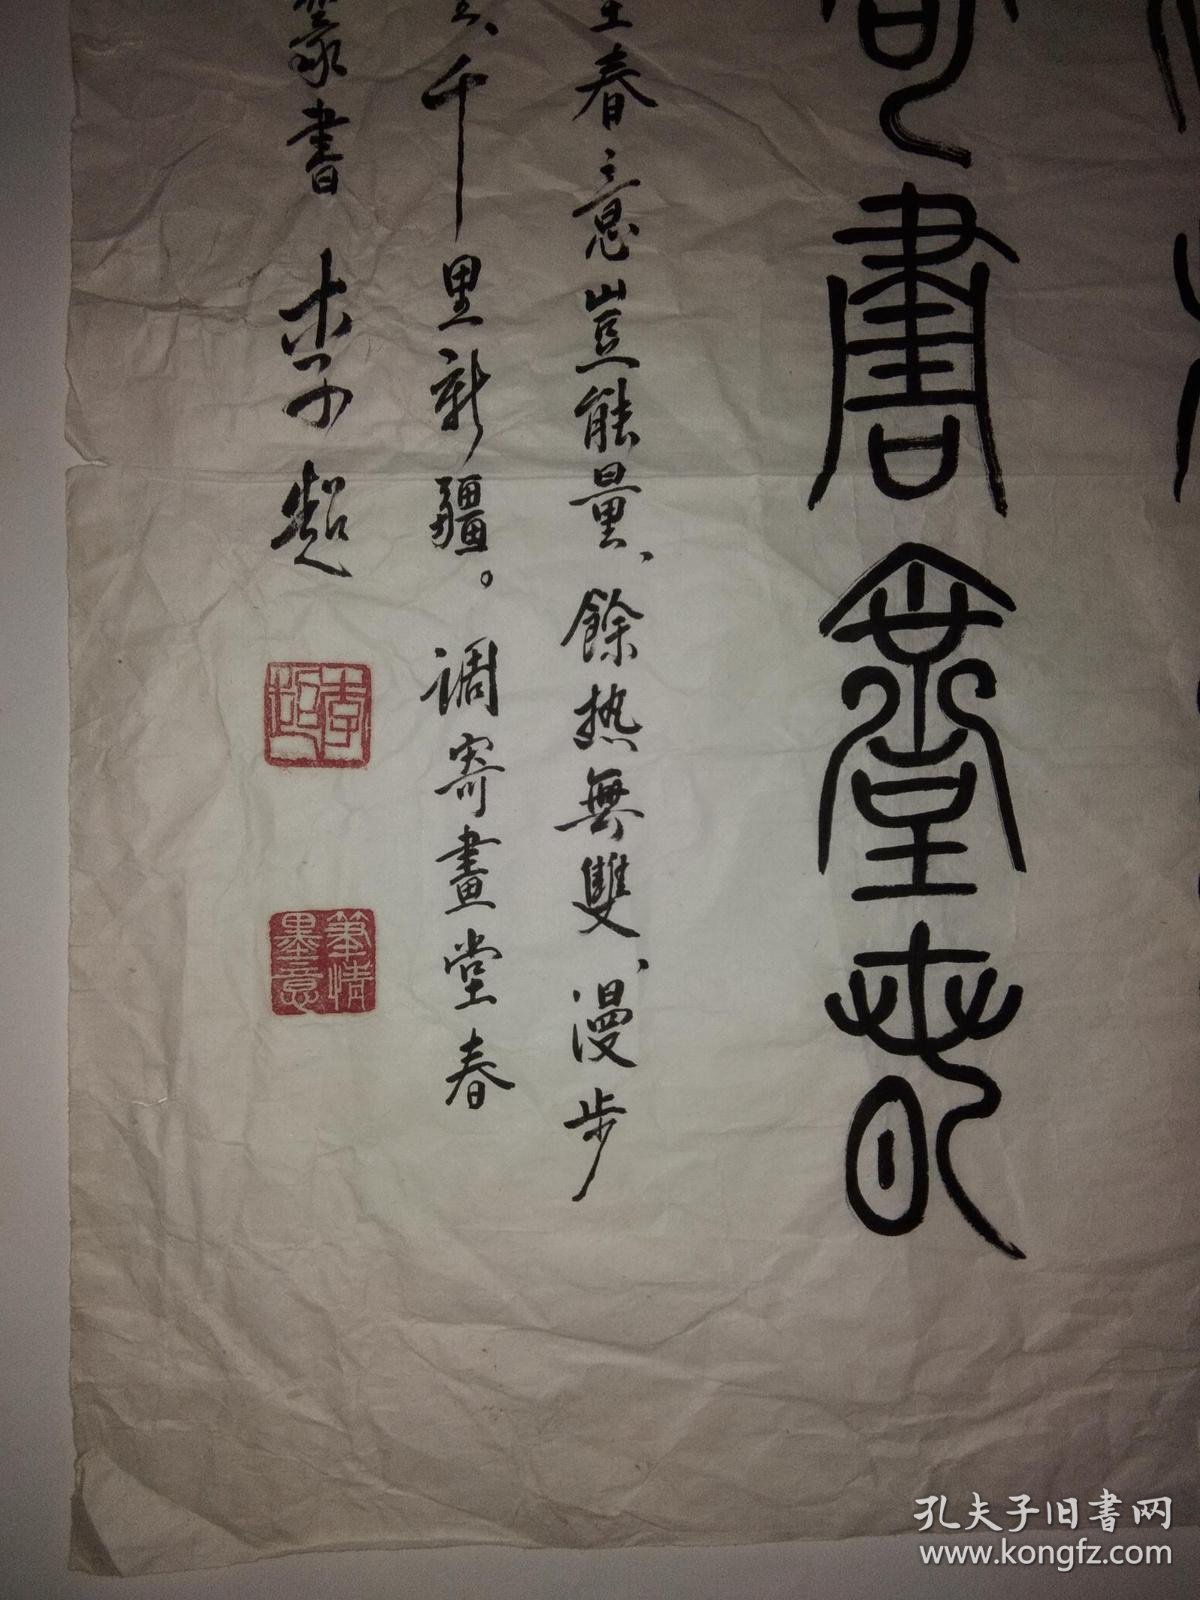 畫堂春
春意豈能量、餘热無雙、漫步
千里新疆。调寄畫堂春
篆書 李超
李超
筆情墨意
孔夫子旧書网
www.kongfz.com